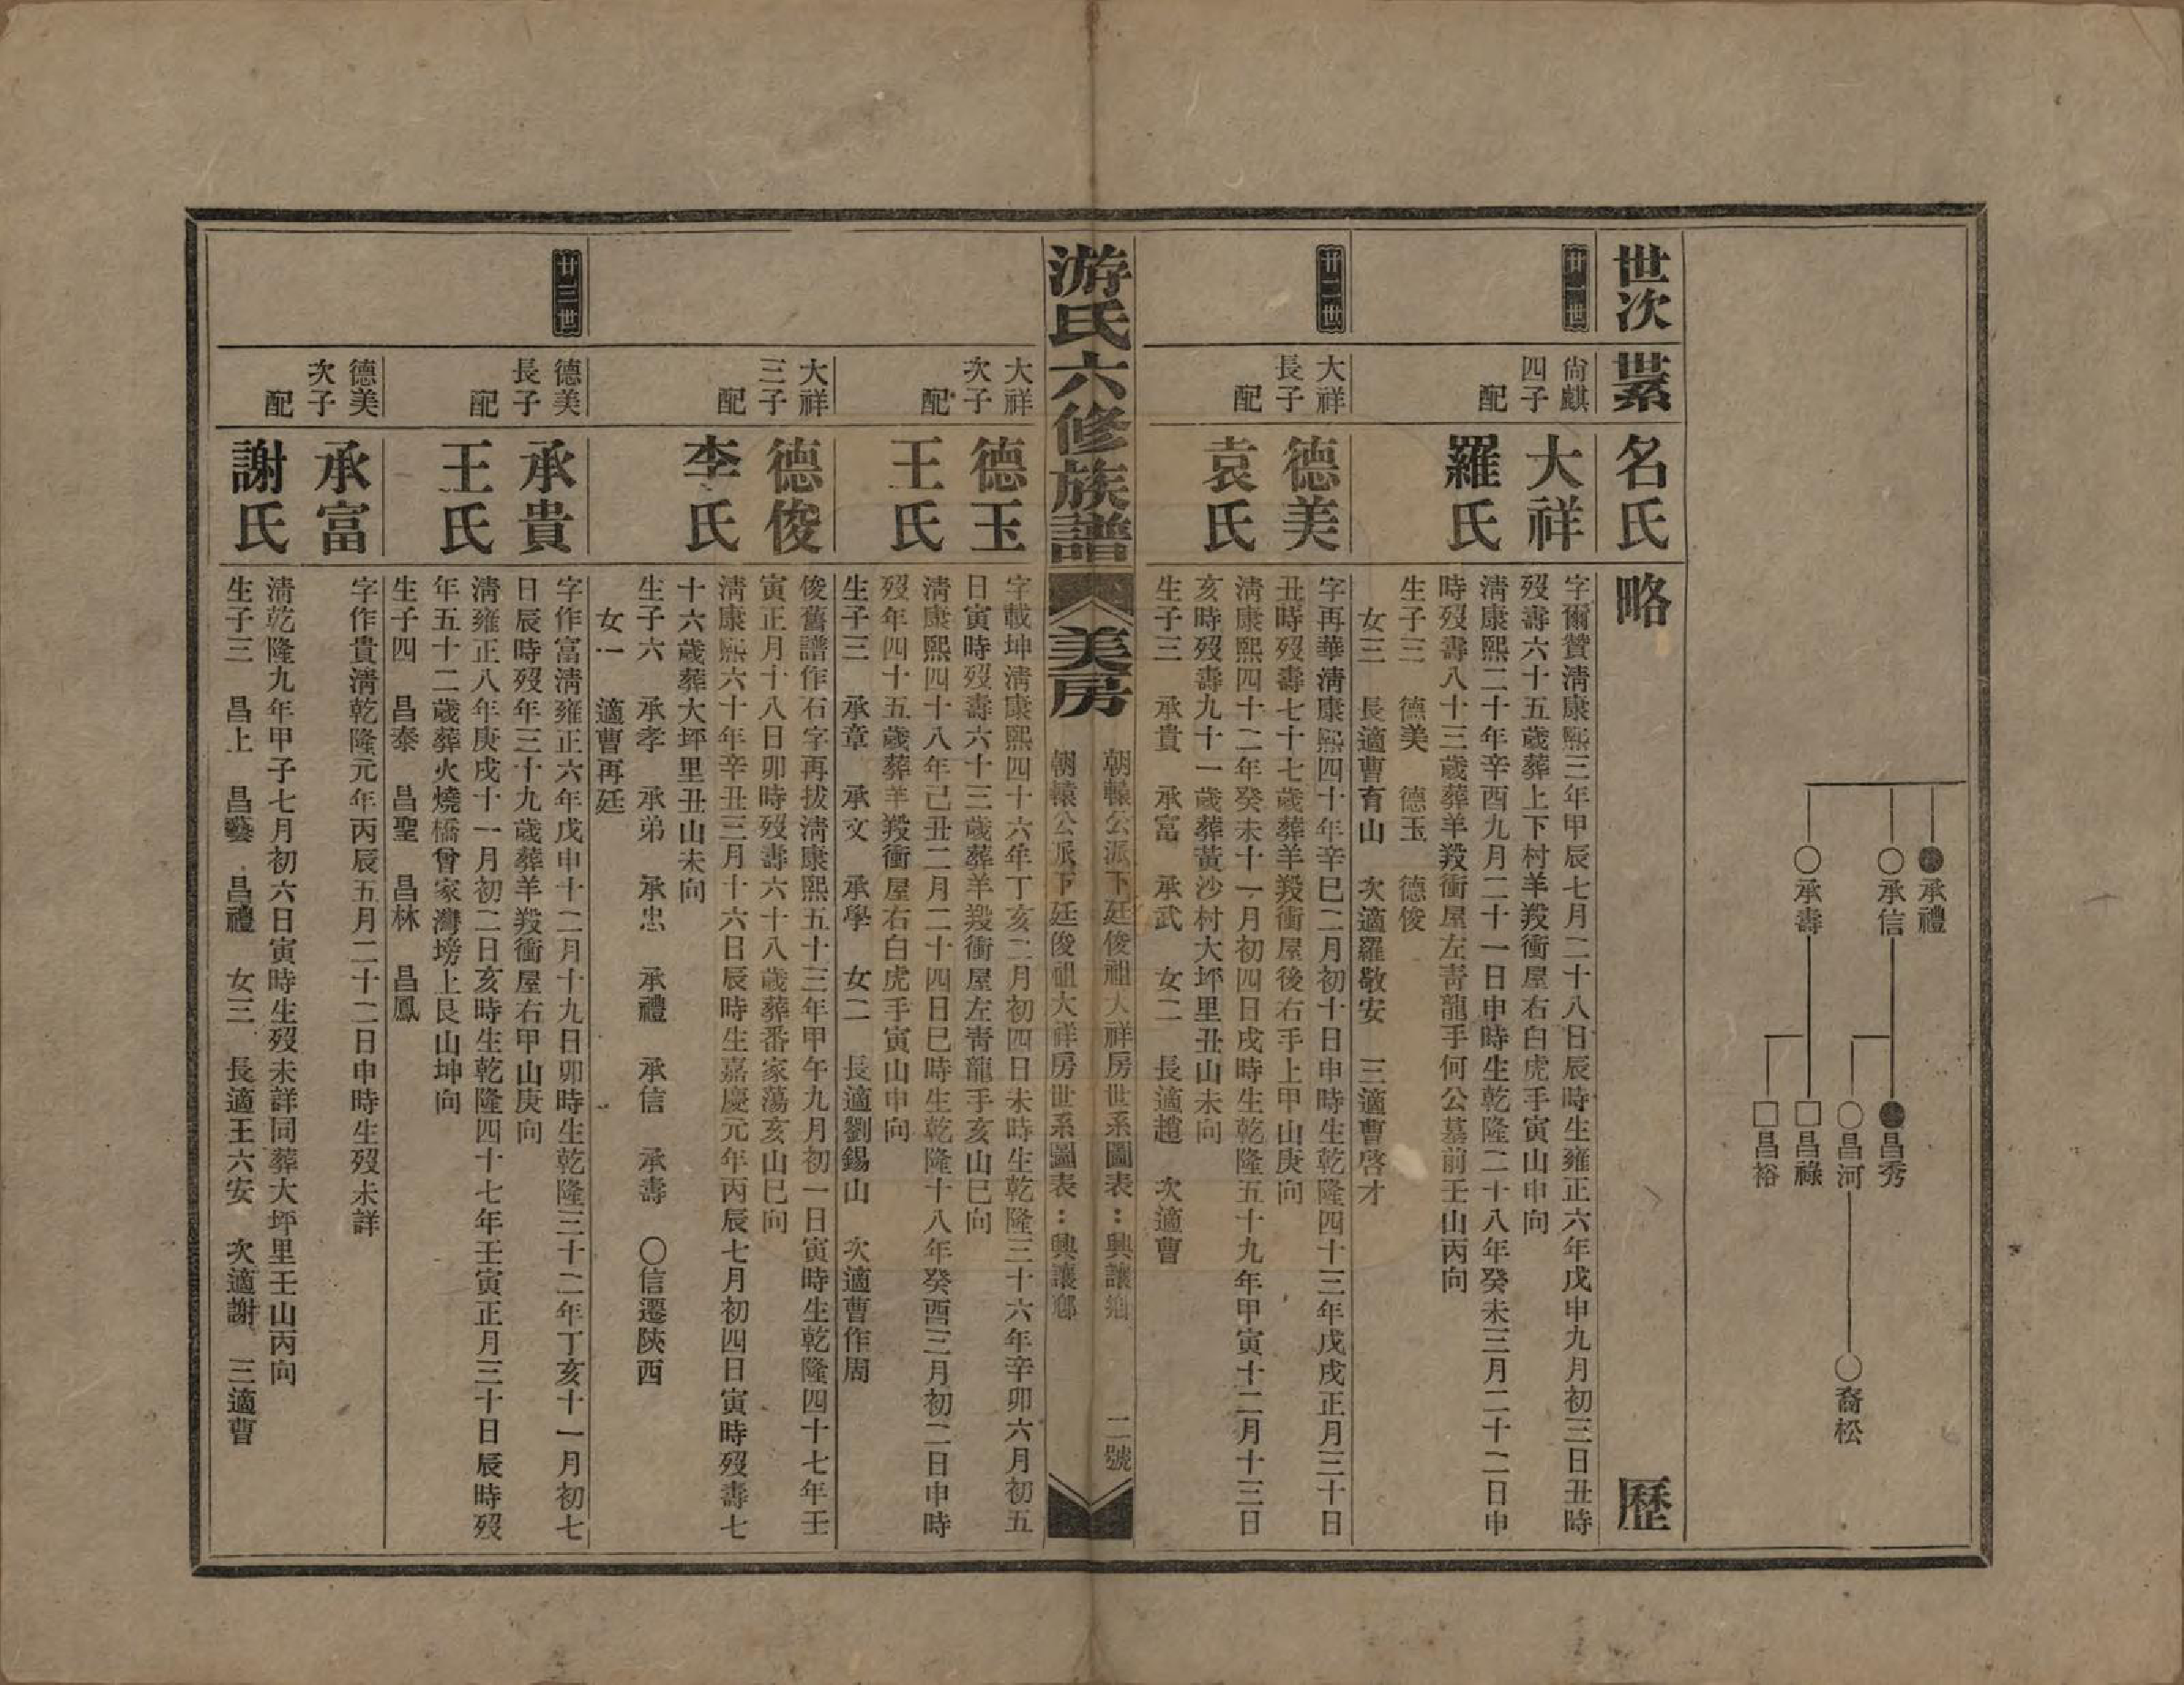 承禮
承信
承壽
昌秀
昌河
昌祿
昌裕
裔松
世次
世系
名氏
略
歷
廿一世
尙麒
四子
大祥
字爾贊淸康熙三年甲辰七月二十八日辰時生雍正六年戊申九月初三日丑時
歿壽六十五歲葬上下村羊㹽衝屋右白虎手寅山申向
配
羅氏
淸康熙二十年辛酉九月二十一日申時生乾隆二十八年癸未三月二十二日申
時歿壽八十三歲葬羊㹽衝屋左靑龍手何公墓前壬山丙向
生子三 德美 德玉 德俊
女三 長適曹育山 次適羅敬安 三適曹啓才
廿二世
大祥
長子
德美
字再華淸康熙四十年辛巳二月初十日申時生乾隆四十三年戊戌正月三十日
丑時歿壽七十七歲葬羊㹽衝屋後右手上甲山庚向
配
袁氏
淸康熙四十二年癸未十一月初四日戌時生乾隆五十九年甲寅十二月十三日
亥時歿壽九十一歲葬黃沙村大坪里丑山未向
生子三 承貴 承富 承武 女二 長適趙 次適曹
游氏六修族譜
美房
朝轅公派下廷俊祖大祥房世系圖表：興讓鄕
二號
朝轅公派下廷俊祖大祥房世系圖表：興讓鄕
大祥
次子
德玉
字載坤淸康熙四十六年丁亥二月初四日未時生乾隆三十六年辛卯六月初五
日寅時歿壽六十三歲葬羊㹽衝屋左靑龍手亥山巳向
配
王氏
淸康熙四十八年己丑二月二十四日巳時生乾隆十八年癸酉三月初二日申時
歿年四十五歲葬羊㹽衝屋右白虎手寅山申向
生子三 承章 承文 承學 女二 長適劉錫山 次適曹作周
大祥
三子
德俊
俊舊譜作石字再拔淸康熙五十三年甲午九月初一日寅時生乾隆四十七年壬
寅正月十八日卯時歿壽六十八歲葬番家蕩亥山巳向
配
李氏
淸康熙六十年辛丑三月十六日辰時生嘉慶元年丙辰七月初四日寅時歿壽七
十六歲葬大坪里丑山未向
生子六 承孝 承弟 承忠 承禮 承信 承壽 〇信遷陝西
女一 適曹再廷
廿三世
德美
長子
承貴
字作富淸雍正六年戊申十二月十九日卯時生乾隆三十二年丁亥十一月初七
日辰時歿年三十九歲葬羊㹽衝屋右甲山庚向
配
王氏
淸雍正八年庚戌十一月初二日亥時生乾隆四十七年壬寅正月三十日辰時歿
年五十二歲葬火燒橋曾家灣塝上艮山坤向
生子四 昌泰 昌聖 昌林 昌鳳
德美
次子
承富
字作貴淸乾隆元年丙辰五月二十二日申時生歿未詳
配
謝氏
淸乾隆九年甲子七月初六日寅時生歿未詳同葬大坪里壬山丙向
生子三 昌上 昌藝 昌禮 女三 長適王六安 次適謝 三適曹